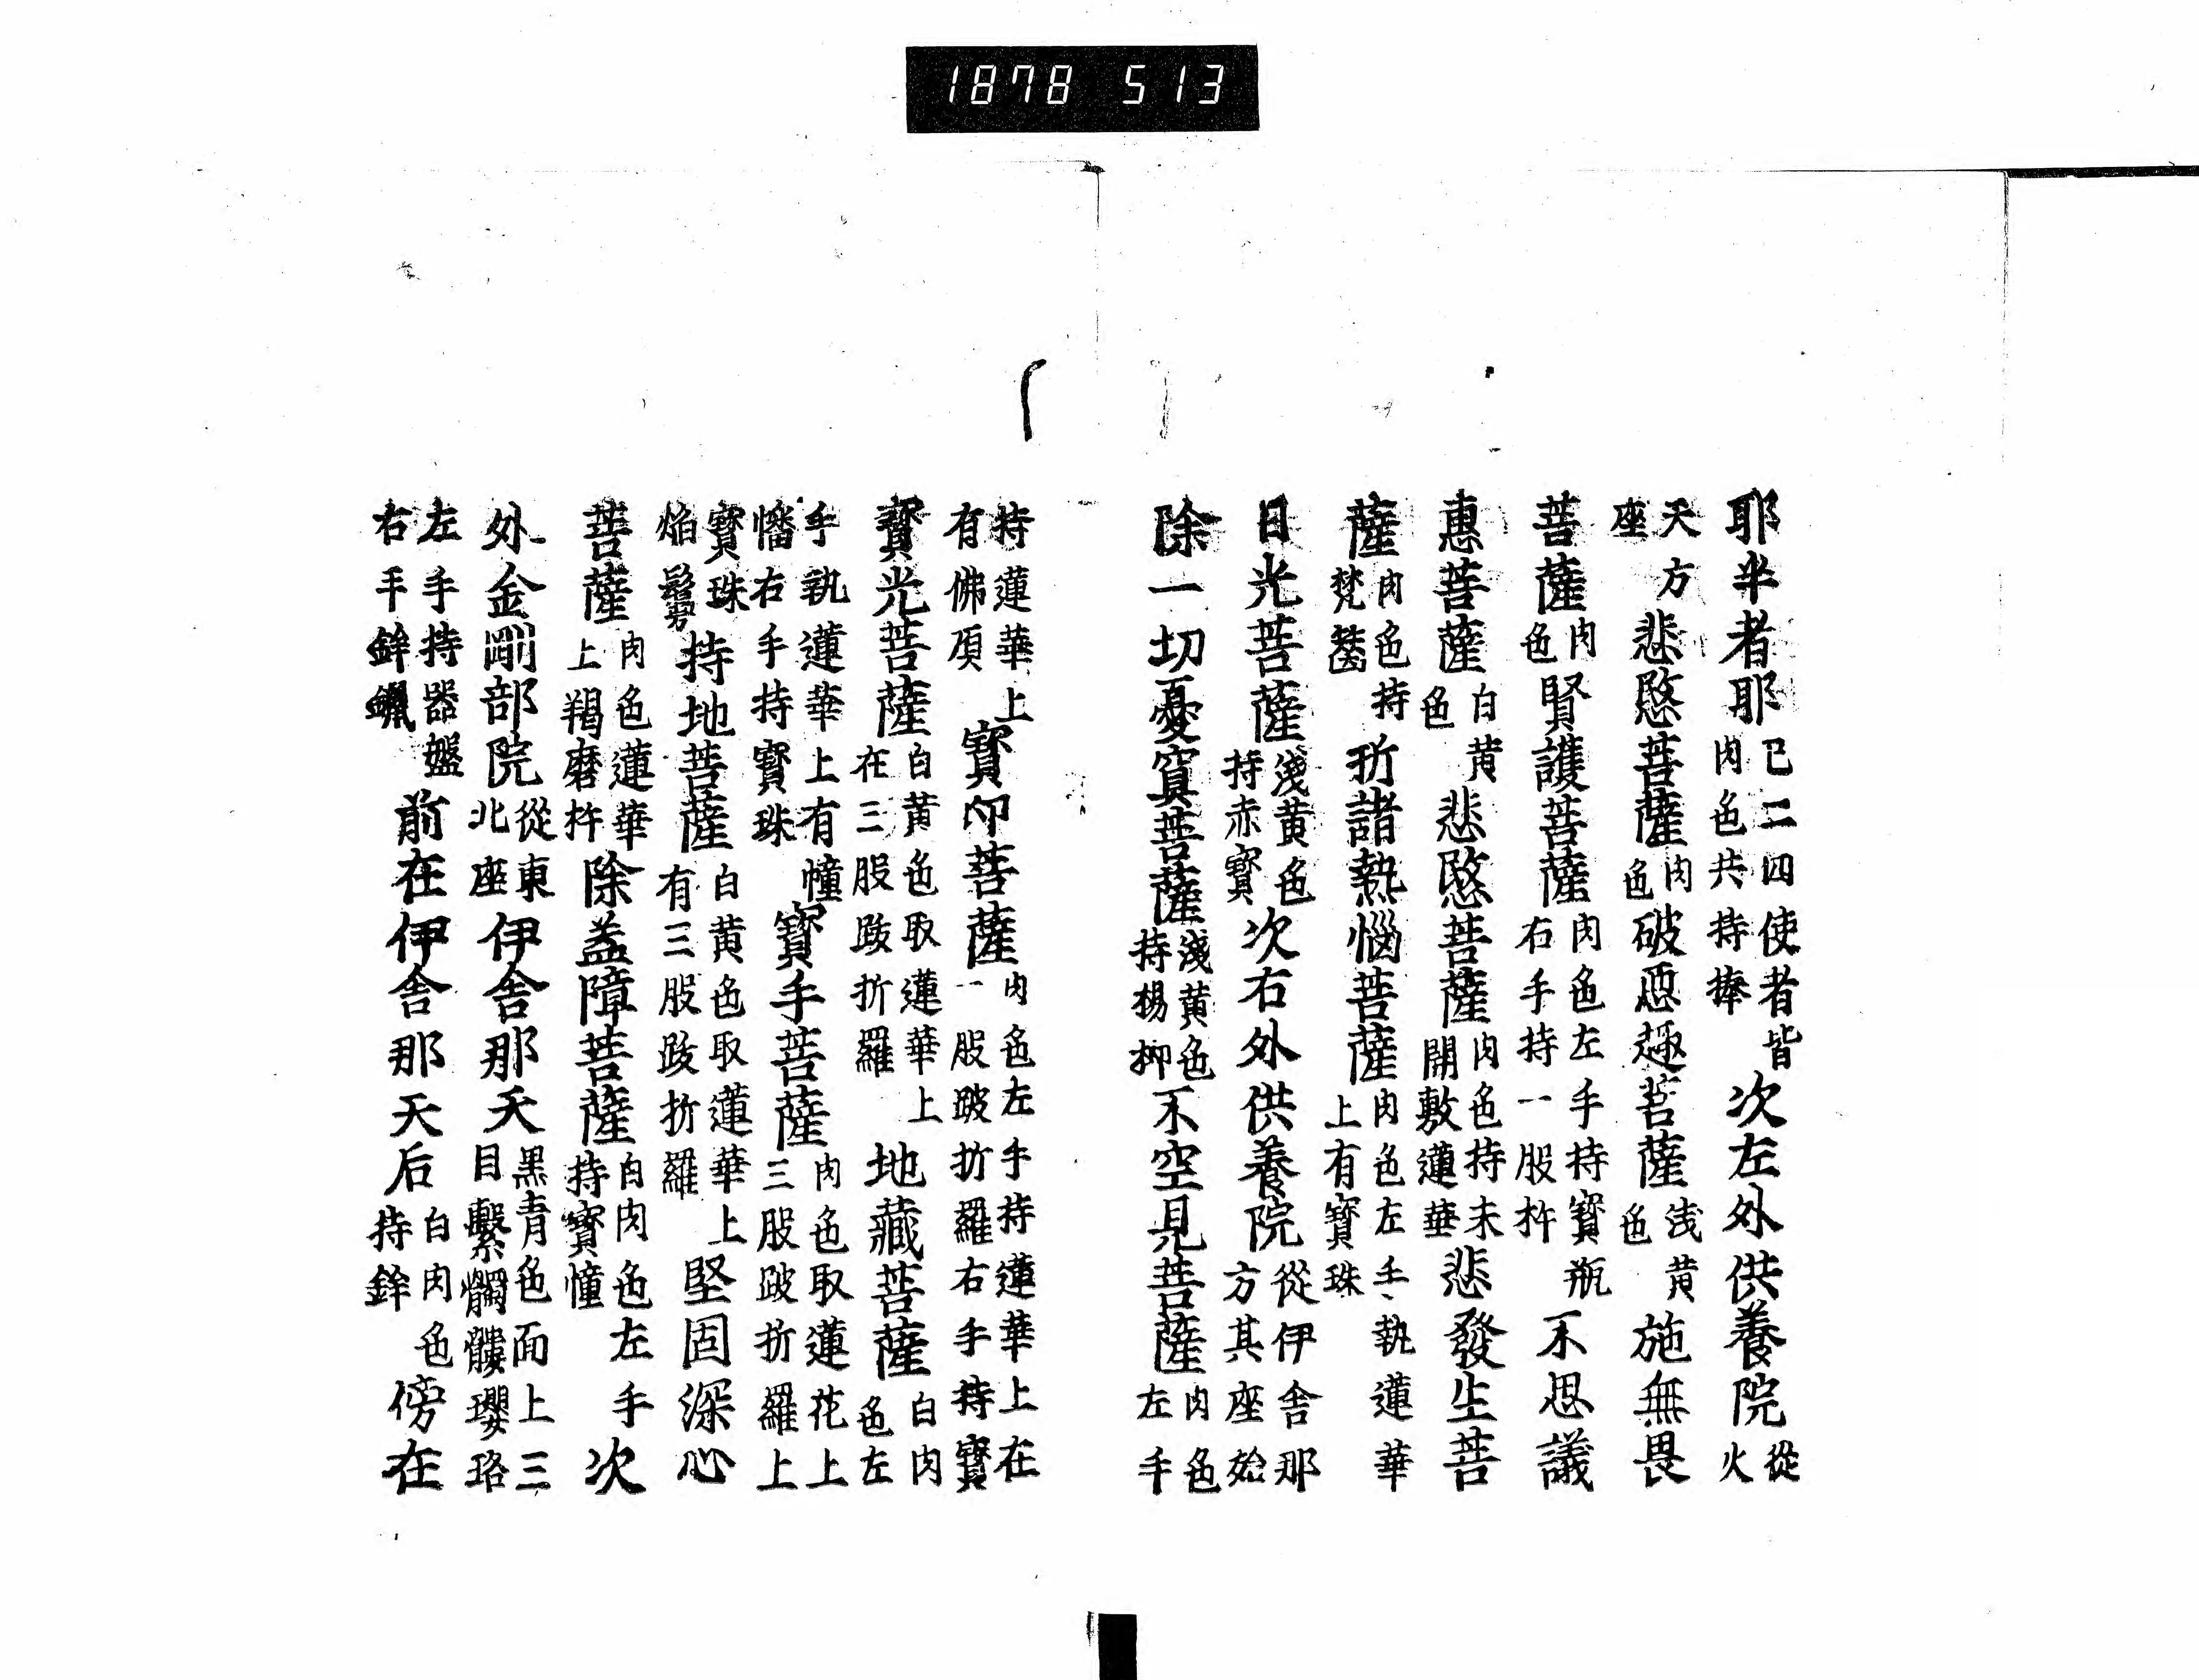 1878 513
耶半者耶已二四使者皆肉色共持捧次左外供養院從火
天方座悲愍菩薩肉色破惡趣菩薩浅黄色施無畏
菩薩肉色賢護菩薩肉色左手持寶瓶右手持一股杵不思議
惠菩薩白黄色悲愍菩薩肉色持未開敷蓮華悲發生菩
薩肉色持梵篋折諸熱惱菩薩肉色左手執蓮華上有寶珠
日光菩薩淺黄色持赤寶次右外供養院從伊舎那方其座始
除一切憂冥菩薩淺黄色持楊柳不空見菩薩肉色左手
持蓮華上有佛頂寶印菩薩肉色左手持蓮華上在一股跛折羅右手持寶
寶光菩薩白黄色取蓮華上在三股跋折羅地藏菩薩白肉色左
手執蓮華上有幢幡右手持寶珠寶手菩薩肉色取蓮花上三股跛折羅上
寶珠焔鬘持地菩薩白黄色取蓮華上有三股跋折羅堅固深心
菩薩肉色蓮華上羯磨杵除盖障菩薩白肉色左手持寶幢次
外金剛部院從東北座伊舎那天黒青色面上三目繫髑髏瓔珞
左手持器盤右手鉾前在伊舎那天后白肉色持鉾傍在